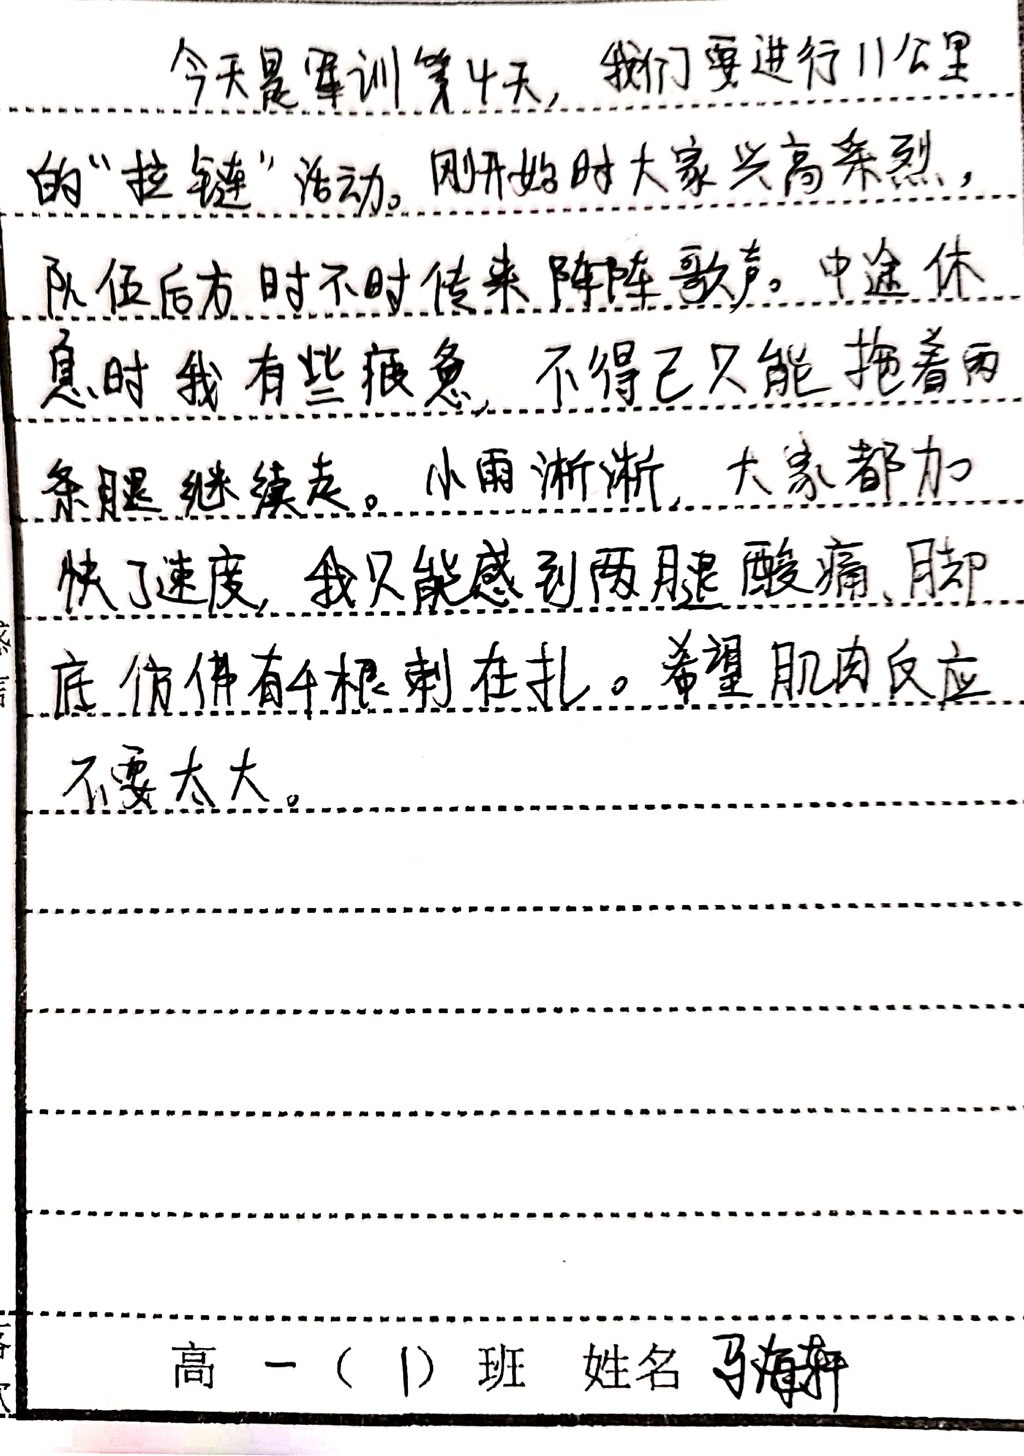 今天是军训第4天，我们要进行11公里
的“拉链”活动。刚开始时大家兴高采烈，
队伍后方时不时传来阵阵歌声。中途休
息时我有些疲惫，不得已只能拖着两
条腿继续走。小雨淅淅，大家都加
快了速度，我只能感到两腿酸痛、脚
底仿佛有千根刺在扎。希望肌肉反应
不要太大。
高一（1）班 姓名 马海轩